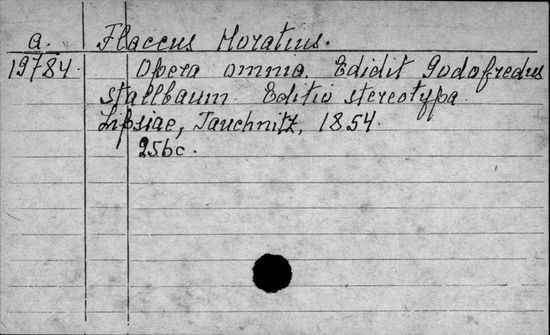 a. Flaccus Horatius.
19784. Opera omnia. Edidit Godofredus
Stallbaum. Editio stereotypa.
Lipsiae, Tauchnitz, 1854.
256c.